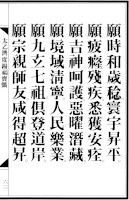 願時和歲稔寰宇昇平
願疲癃殘疾悉獲安痊
願吉神呵護惡曜潛藏
願境域清寧人民樂業
願九玄七祖俱登道岸
願宗親師友咸得超昇